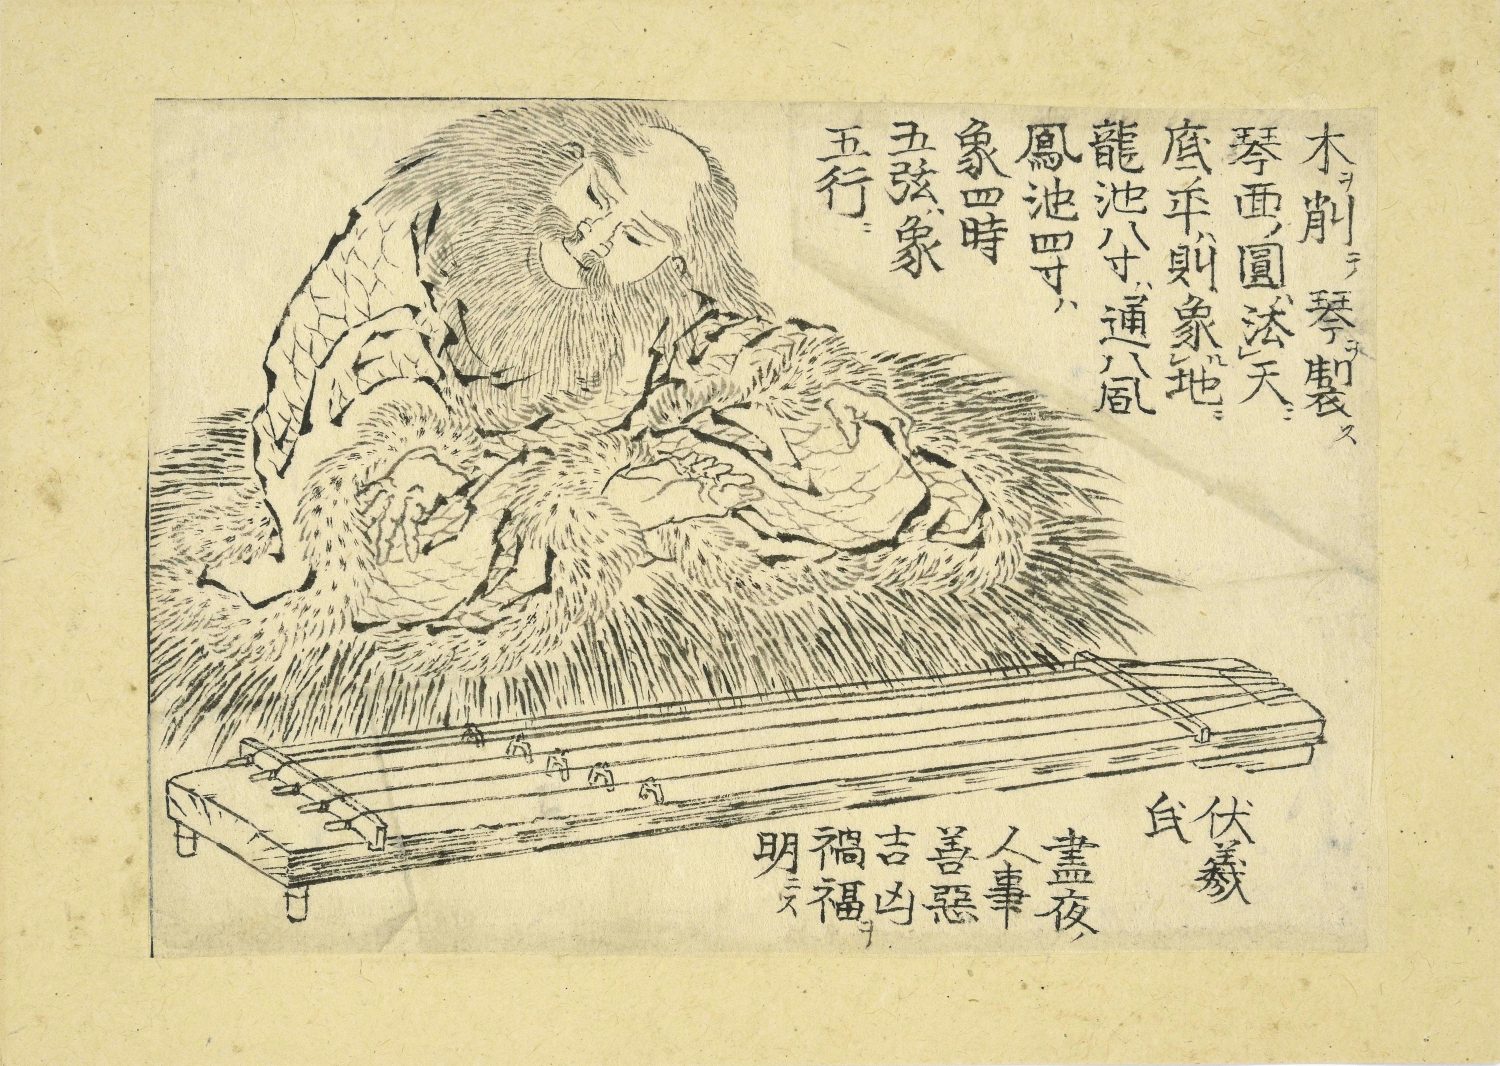 木ヲ削テ琴ヲ製ス
琴面ノ圓ハ法レ天ニ
底ノ平ハ則象ルレ地ニ
龍池八寸ハ通八風
鳳池四寸ハ
象四時
五弦ハ象
五行ニ
伏羲
氏
晝夜ノ
人事
善惡
吉凶
禍福ヲ
明ニス